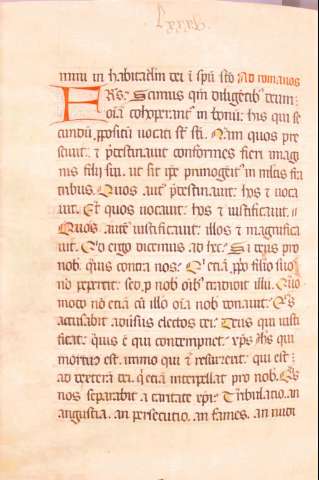 mini in habitaclm dei ı spū scō Ad romanos
FRS. Scimus qm̄ diligētib᷒ deum
oīa cohoperant᷒ in bonū. hys qui se
cundū ꝓpositū uocati sūt scī. Nam quos pre
sciuit. ⁊ p̄destinauit conformes fieri imagi
nis filii sui. ut sit ip̄e primogēit᷒ in mltis frā
tribus. Quos aut̄ p̄destinauit. hos ⁊ uoca
uit. Et quos uocauit. hos ⁊ iustificauit.
Quos autē iustificauit. illos ⁊ magnifica
uit. Qd ergo dicemus ad hec. Si deus pro
nob᷒. quis contra nos. Q' eciā ꝓpo filio suo
nō pepercit. sed p̄ nob᷒ oīb᷒ tradidit illū. Quo
modo nō eciā cū illo oīa nob᷒ donauit. Qs
accusabit aduersus electos dei. Deus qui iusti
ficat. quis ē qui condempnet. xp̄s ihs qui
mortuus est. immo qui ⁊ resurrexit. qui est
ad dexterā dei. q' eciā interpellat pro nob᷒. Qs
nos separabit a caritate xp̄i. Tribulatio. an
angustia. an persecutio. an fames. an nudi